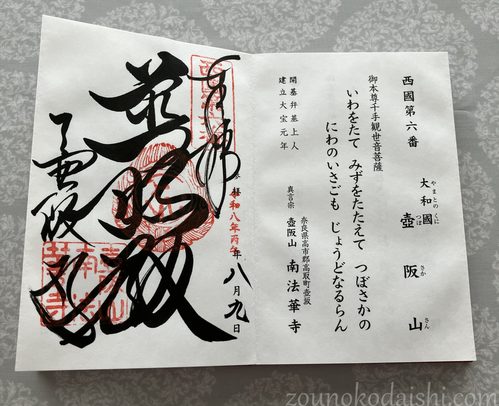 西國第六番
大和國 壺阪山
やまとのくに つぼ さか さん
御本尊千手観世音菩薩
いわをたて みずをたたえて つぼさかの
にわのいさごも じょうどなるらん
開基弁基上人
建立大宝元年
奈良県高市郡高取町壺阪
真言宗 壺阪山 南法華寺
奉拝
令和八年丙午 八月九日
普照殿
zounokodaishi.com